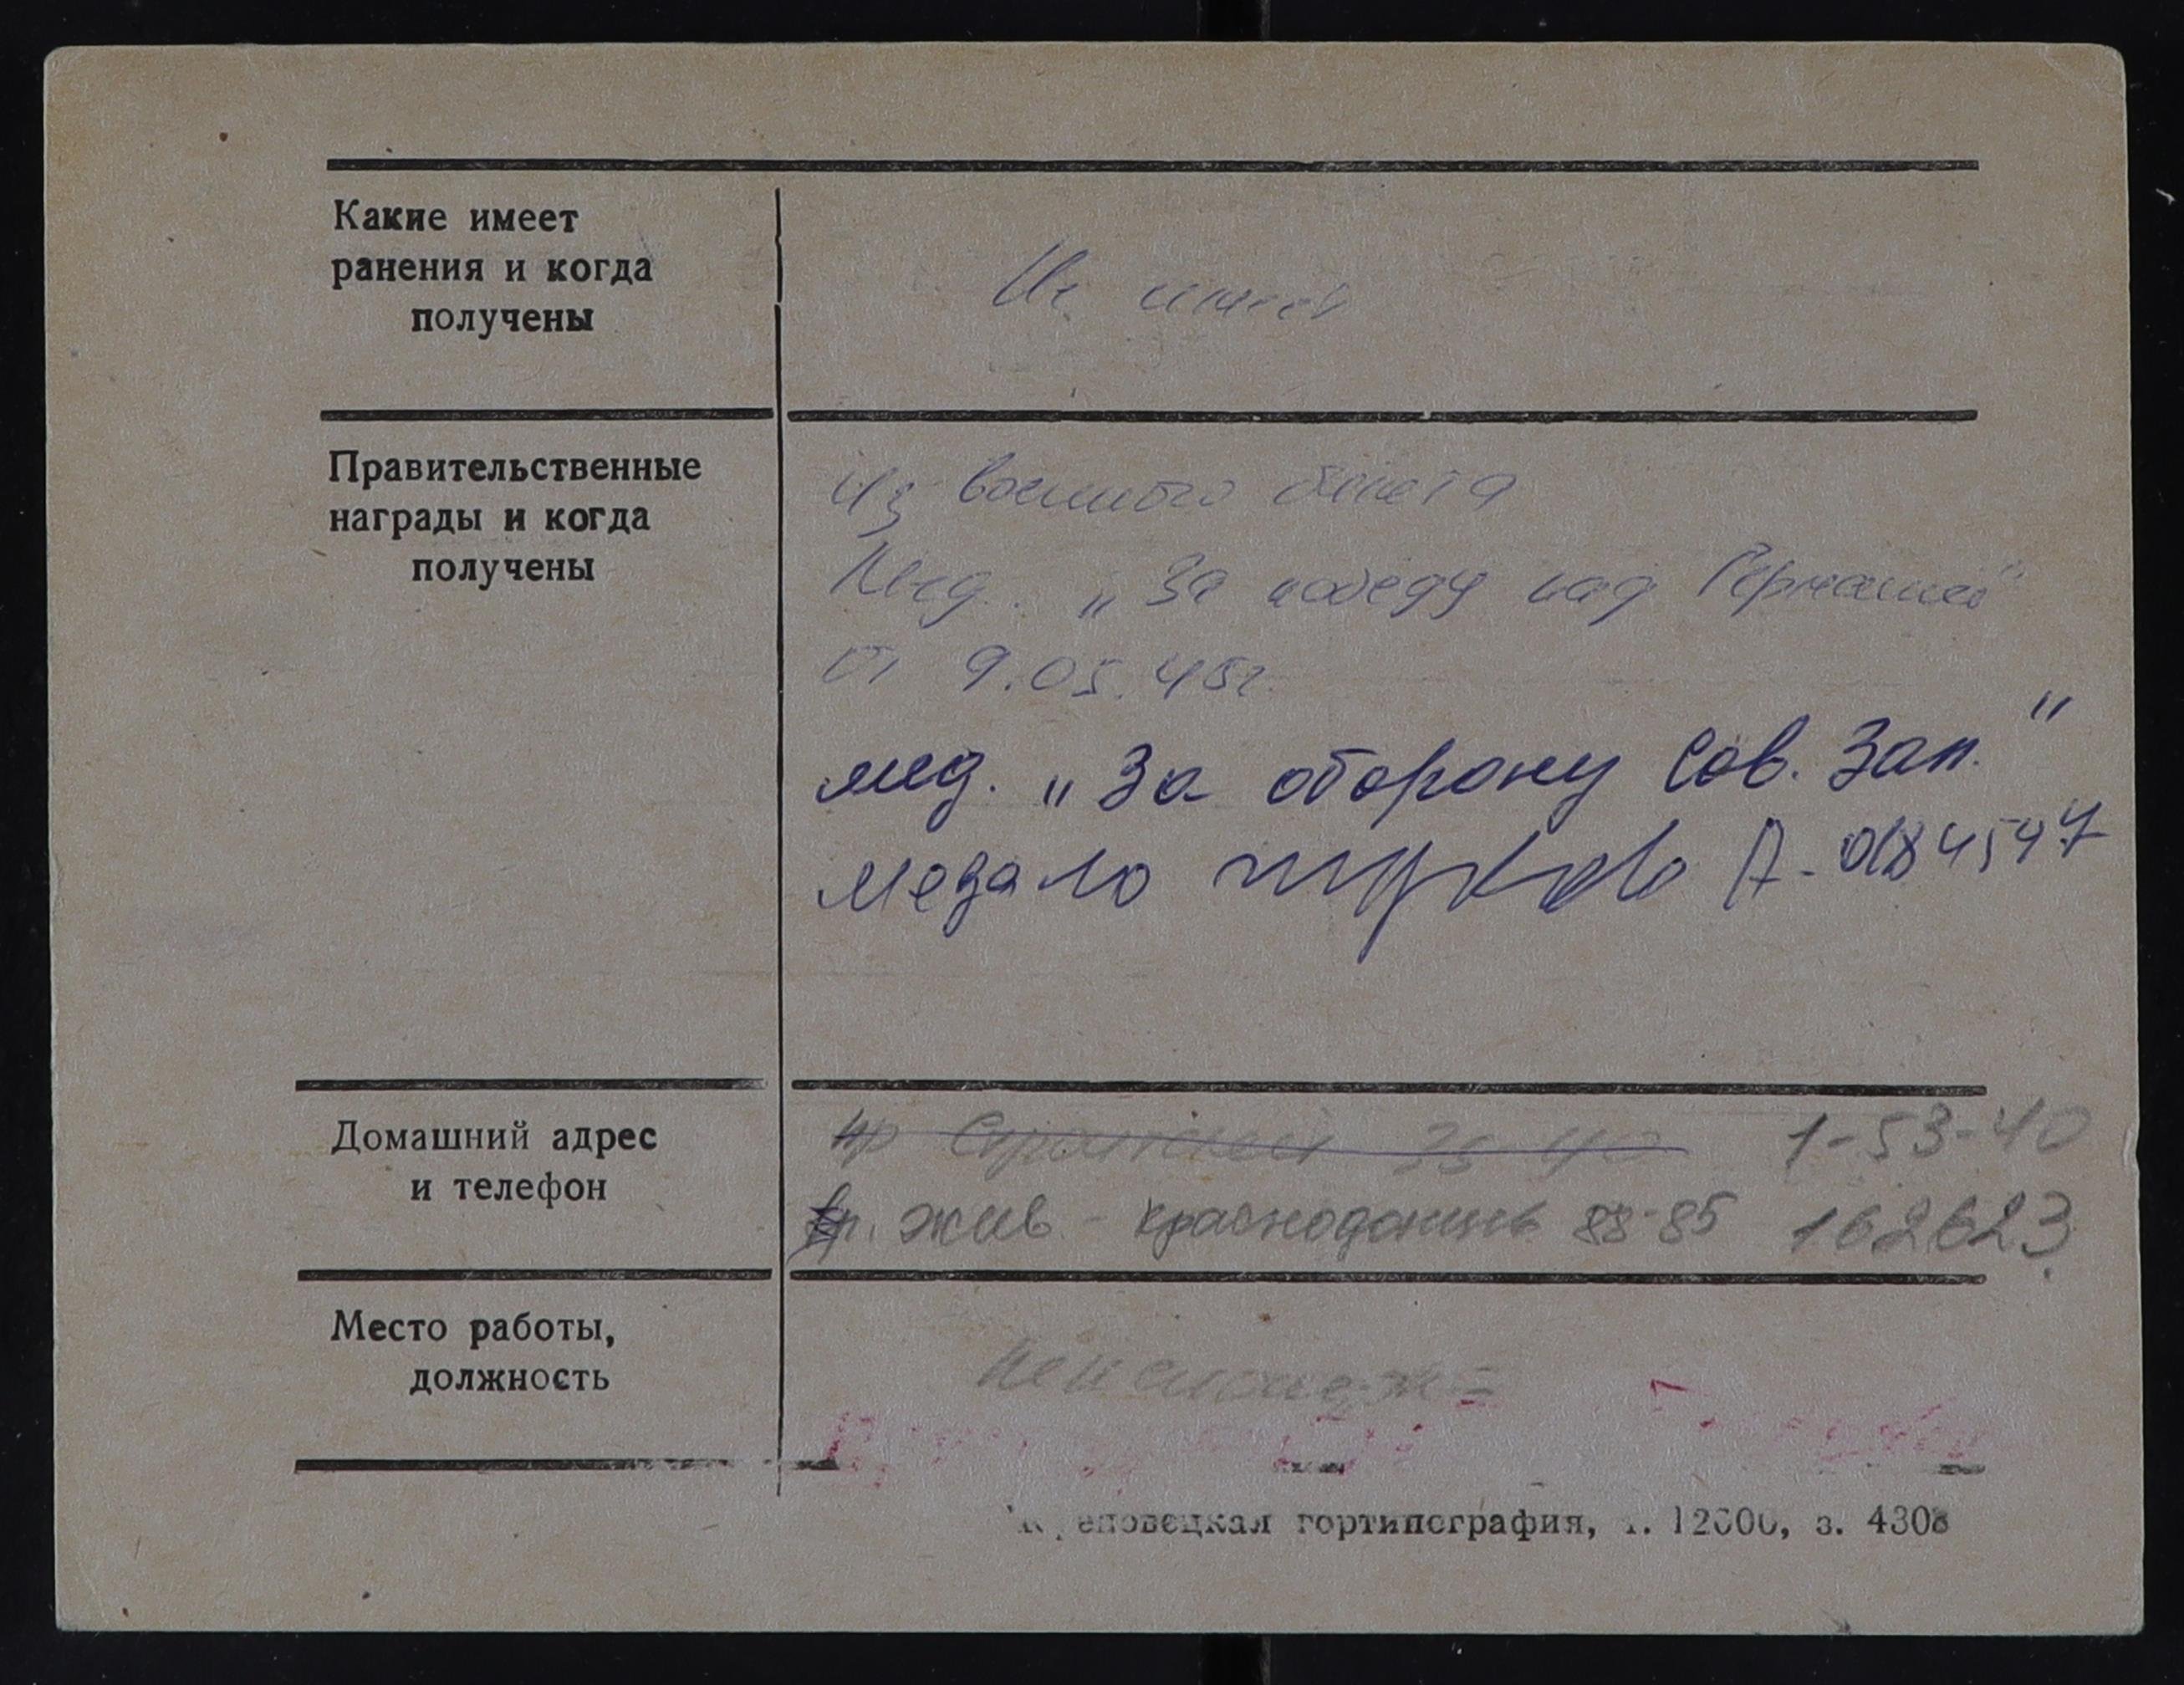 Какие имеет
ранения и когда
получены
Не имеет
Правительственные
награды и когда
получены
Из военного билета
Мед. „За победу над Германией"
от 9.05.45г.
мед. „За оборону Сов. Зап."
Медаль Жукова А-0184547
Домашний адрес
и телефон
пр Строителей 35 40 1-53-40
вр. жив - Краснодонцев 88-85 162623
Место работы,
должность
Пенсионер
еповецкая гортипография, т. 12000, з. 4308